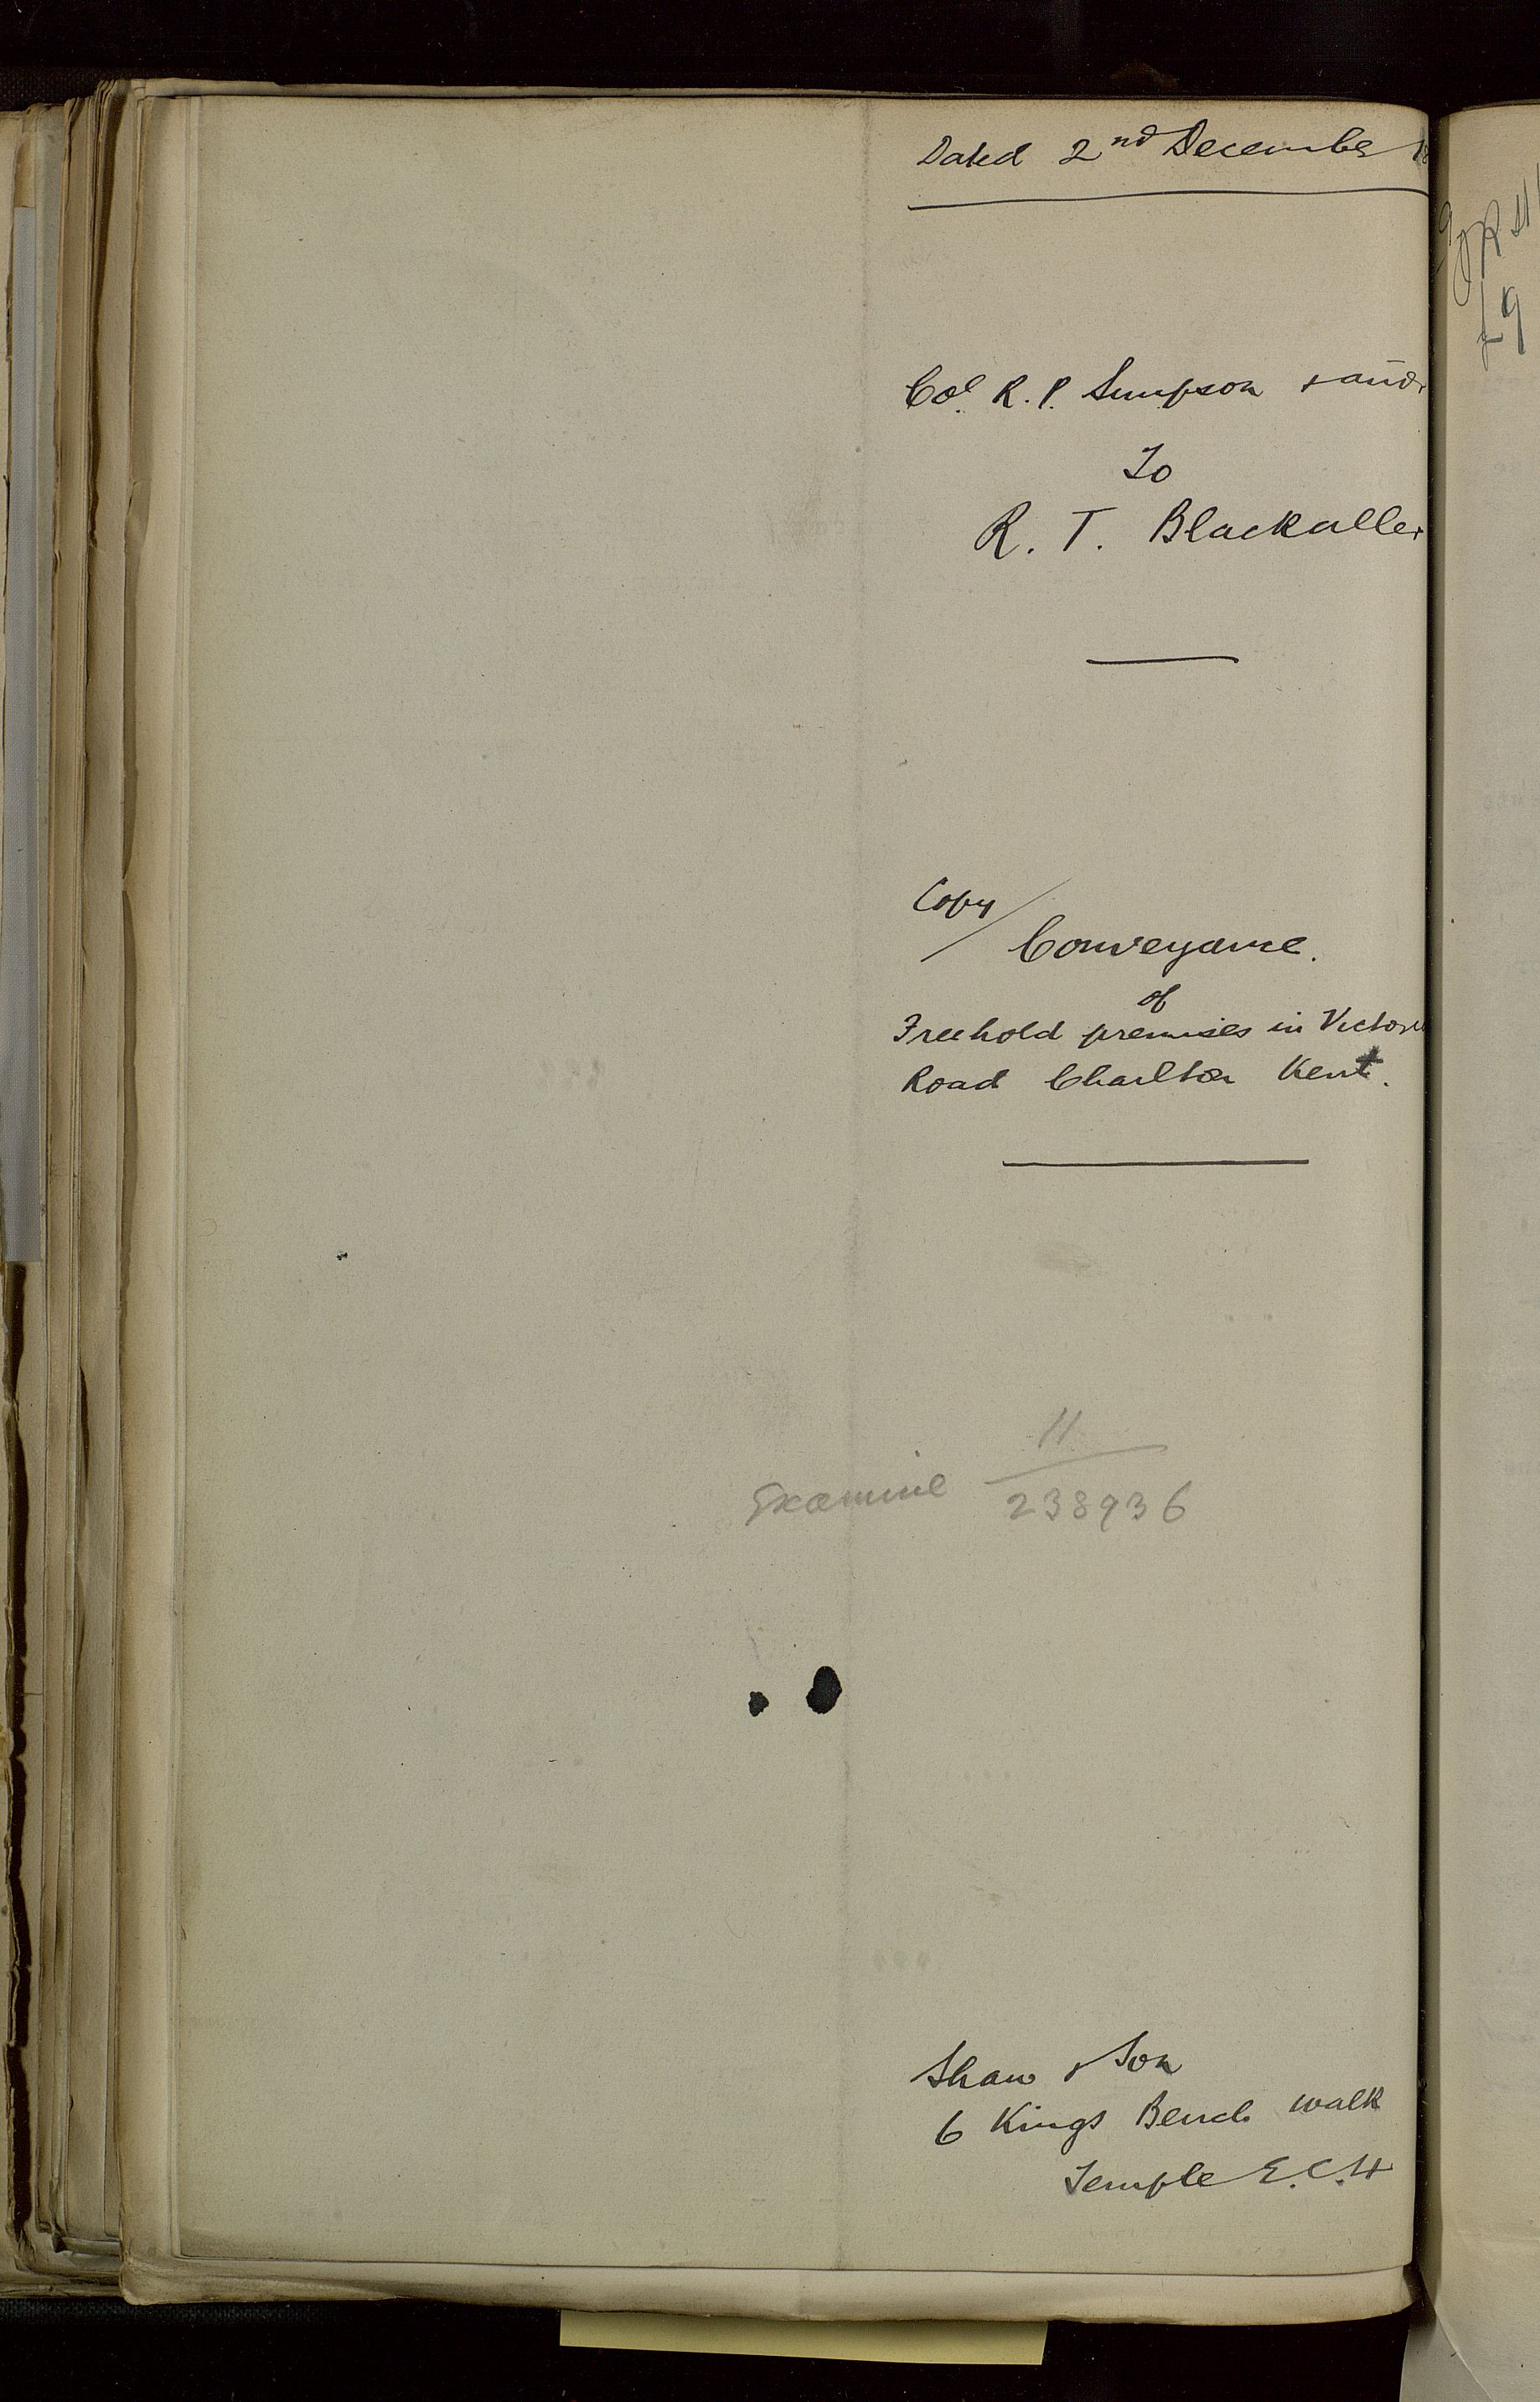 Dated 2nd December 18
Col. R. P. Simpson & anr.
To
R. T. Blackaller
Copy
Conveyance.
of
Freehold premises in Victoria
Road Charlton Kent.
11
Examine 238936
Shaw & Son
6 Kings Bench walk
Temple E.C.4